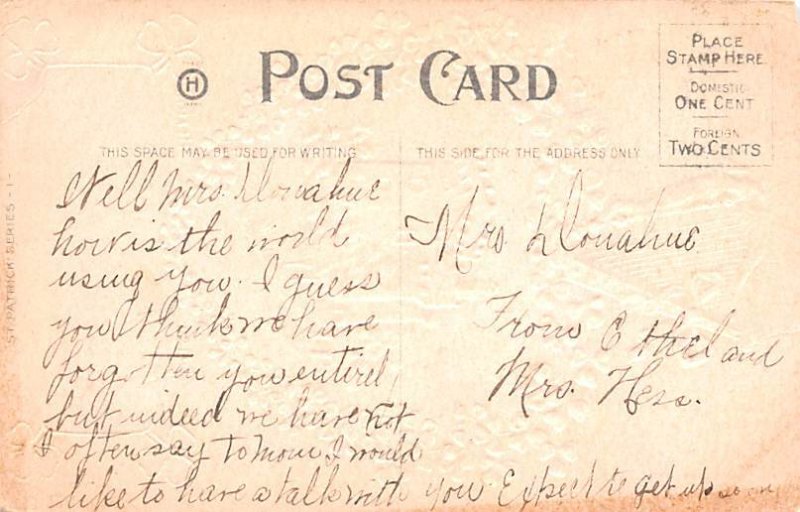 POST CARD
H
PLACE
STAMP HERE
DOMESTIC
ONE CENT
FOREIGN
TWO CENTS
THIS SPACE MAY BE USED FOR WRITING
THIS SIDE FOR THE ADDRESS ONLY
ST. PATRICK SERIES - 1 -
Well Mrs. Donahue
how is the world
using you. I guess
you think we have
forgotten you entirel,
but indeed we have not
I often say to mom I would
like to have a talk with you Expect to get up soon
Mrs Donahue
From Ethel and
Mrs. Hess.